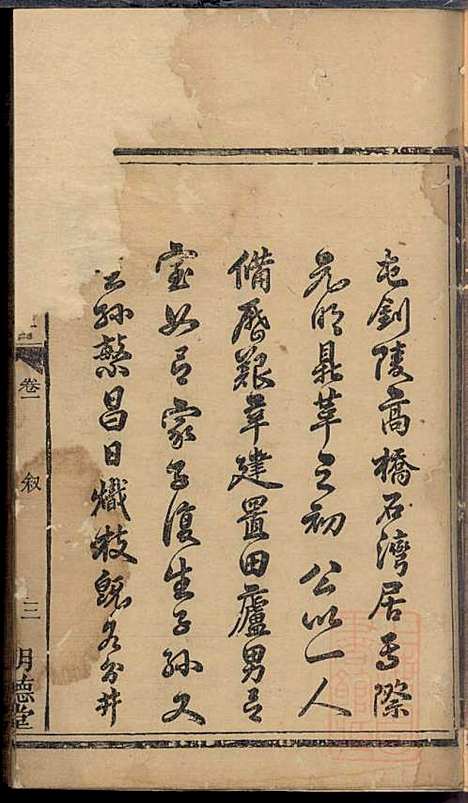 屯釗陵高橋石灣居焉際
元明鼎革之初公以一人
備歷艱辛建置田廬男有
室女有家子復生子孫又
孫蕃昌日熾枝既各分井
卷一
叙
三
明德堂